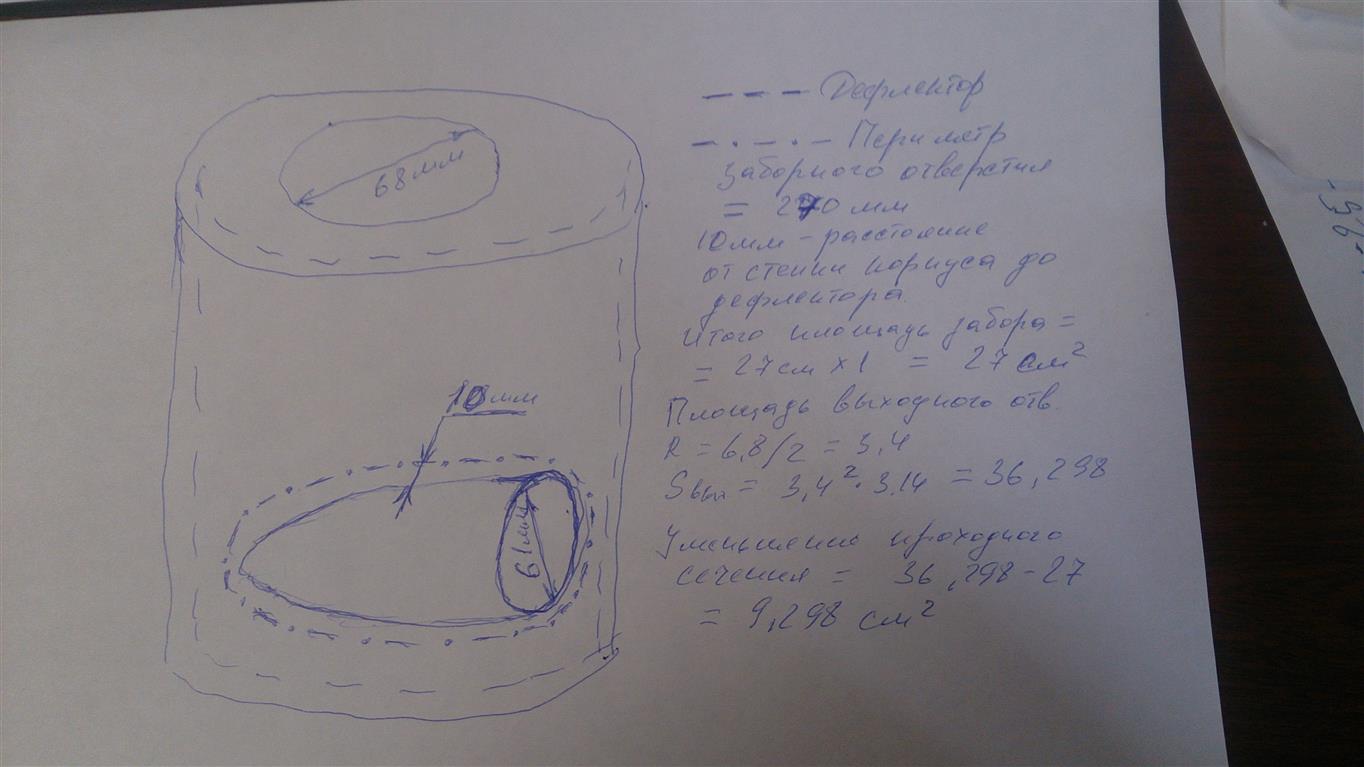 68мм
10мм
61мм
--- Дефлектор
-.-.- Периметр
заборного отверстия
= 270 мм
10мм - расстояние
от стенки корпуса до
дефлектора.
Итого площадь забора =
= 27см х 1 = 27 см²
Площадь выходного отв.
R = 6,8/2 = 3,4
Sвых = 3,4² · 3.14 = 36,298
Уменьшение проходного
сечения = 36,298 - 27
= 9,298 см²